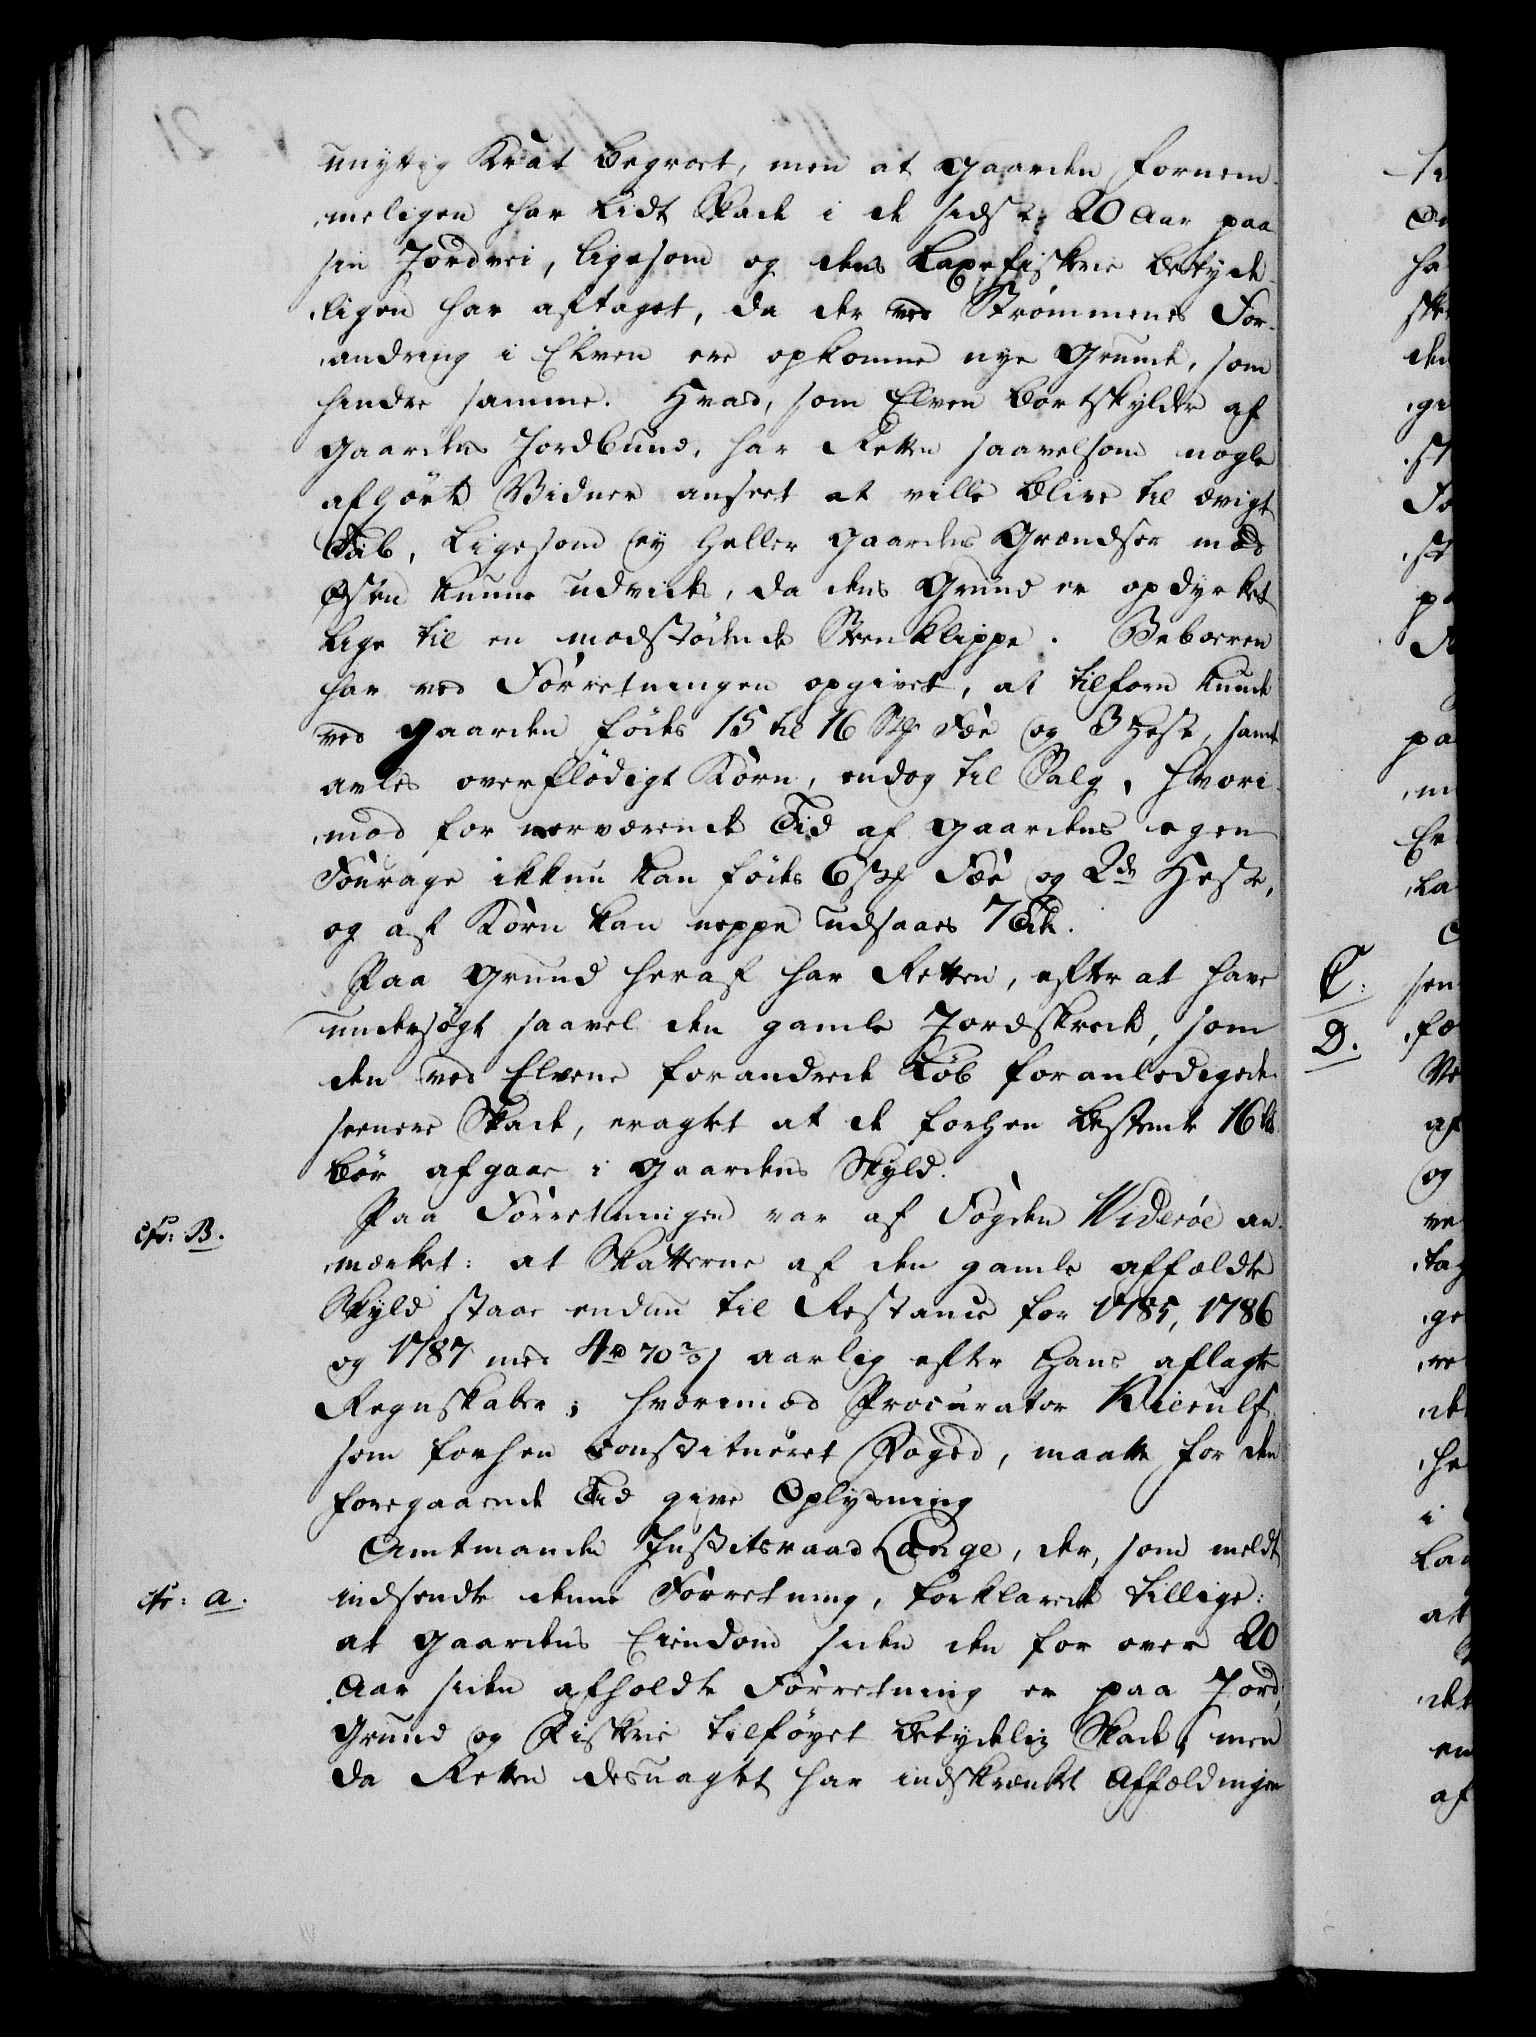 unyttig Krat begroet, men at Gaarden fornem-
meligen har lidt Skade i de sidste 20 Aar paa
sin Jordvei, ligesom og dens Laxefiskerie betyde-
ligen har aftaget, da der ved Strømmenes For-
andring i Elven ere opkomne nye Grunde, som
hindre samme. Hvad, som Elven bortskylder af
Gaardens Jordbund, har Retten saavelsom nogle
afhørte Vidner anseet at ville blive til ævigt
Tab, ligesom ey heller Gaardens Grændser mod
Østen kunne udvides, da dens Grund er opdyrket
lige til en modstødende Steenklippe. Beboeren
har ved Forretningen opgivet, at tilforn kunde
ved Gaarden fødes 15 til 16 Stk Fæe og 3 Heste, samt
avles overflødigt Korn, endog til Salg, hvori-
mod for nærværende Tid af Gaardens egen
Fourage ikkun kan fødes 6 Stk Fæe og 2de Heste,
og af Korn kan neppe udsaaes 7 Tdr.
Paa Grund heraf har Retten, efter at have
undersøgt saavel den gamle Jordskrede, som
den ved Elvens forandrede Løb foranledigede
seenere Skade, eragtet at de forhen bestemte 16
bør afgaae i Gaardens Skyld.
cfr: B.
Paa Forretningen var af Fogden Widerøe an-
mærket: at Skatterne af den gamle affældte
Skyld staae endnu til Restance for 1785, 1786
og 1787 med 4 rd 70 aarlig efter hans aflagte
Regnskaber; hvorimod Procurator Wieculf
som forhen constitueret Foged, maatte for den
foregaaende Tid give Oplysning
cfr: a.
Amtmanden Justitsraad Lange, der, som meldt
indsendte denne Forretning, forklarede tillige:
at Gaardens Eiendom siden den for over 20
Aar siden afholdte Forretning er paa Jord,
Grund og Fiskerie tilføyet betydelig Skade, men
da Retten desuagtet har indskrænket Affældingen
C.
D.